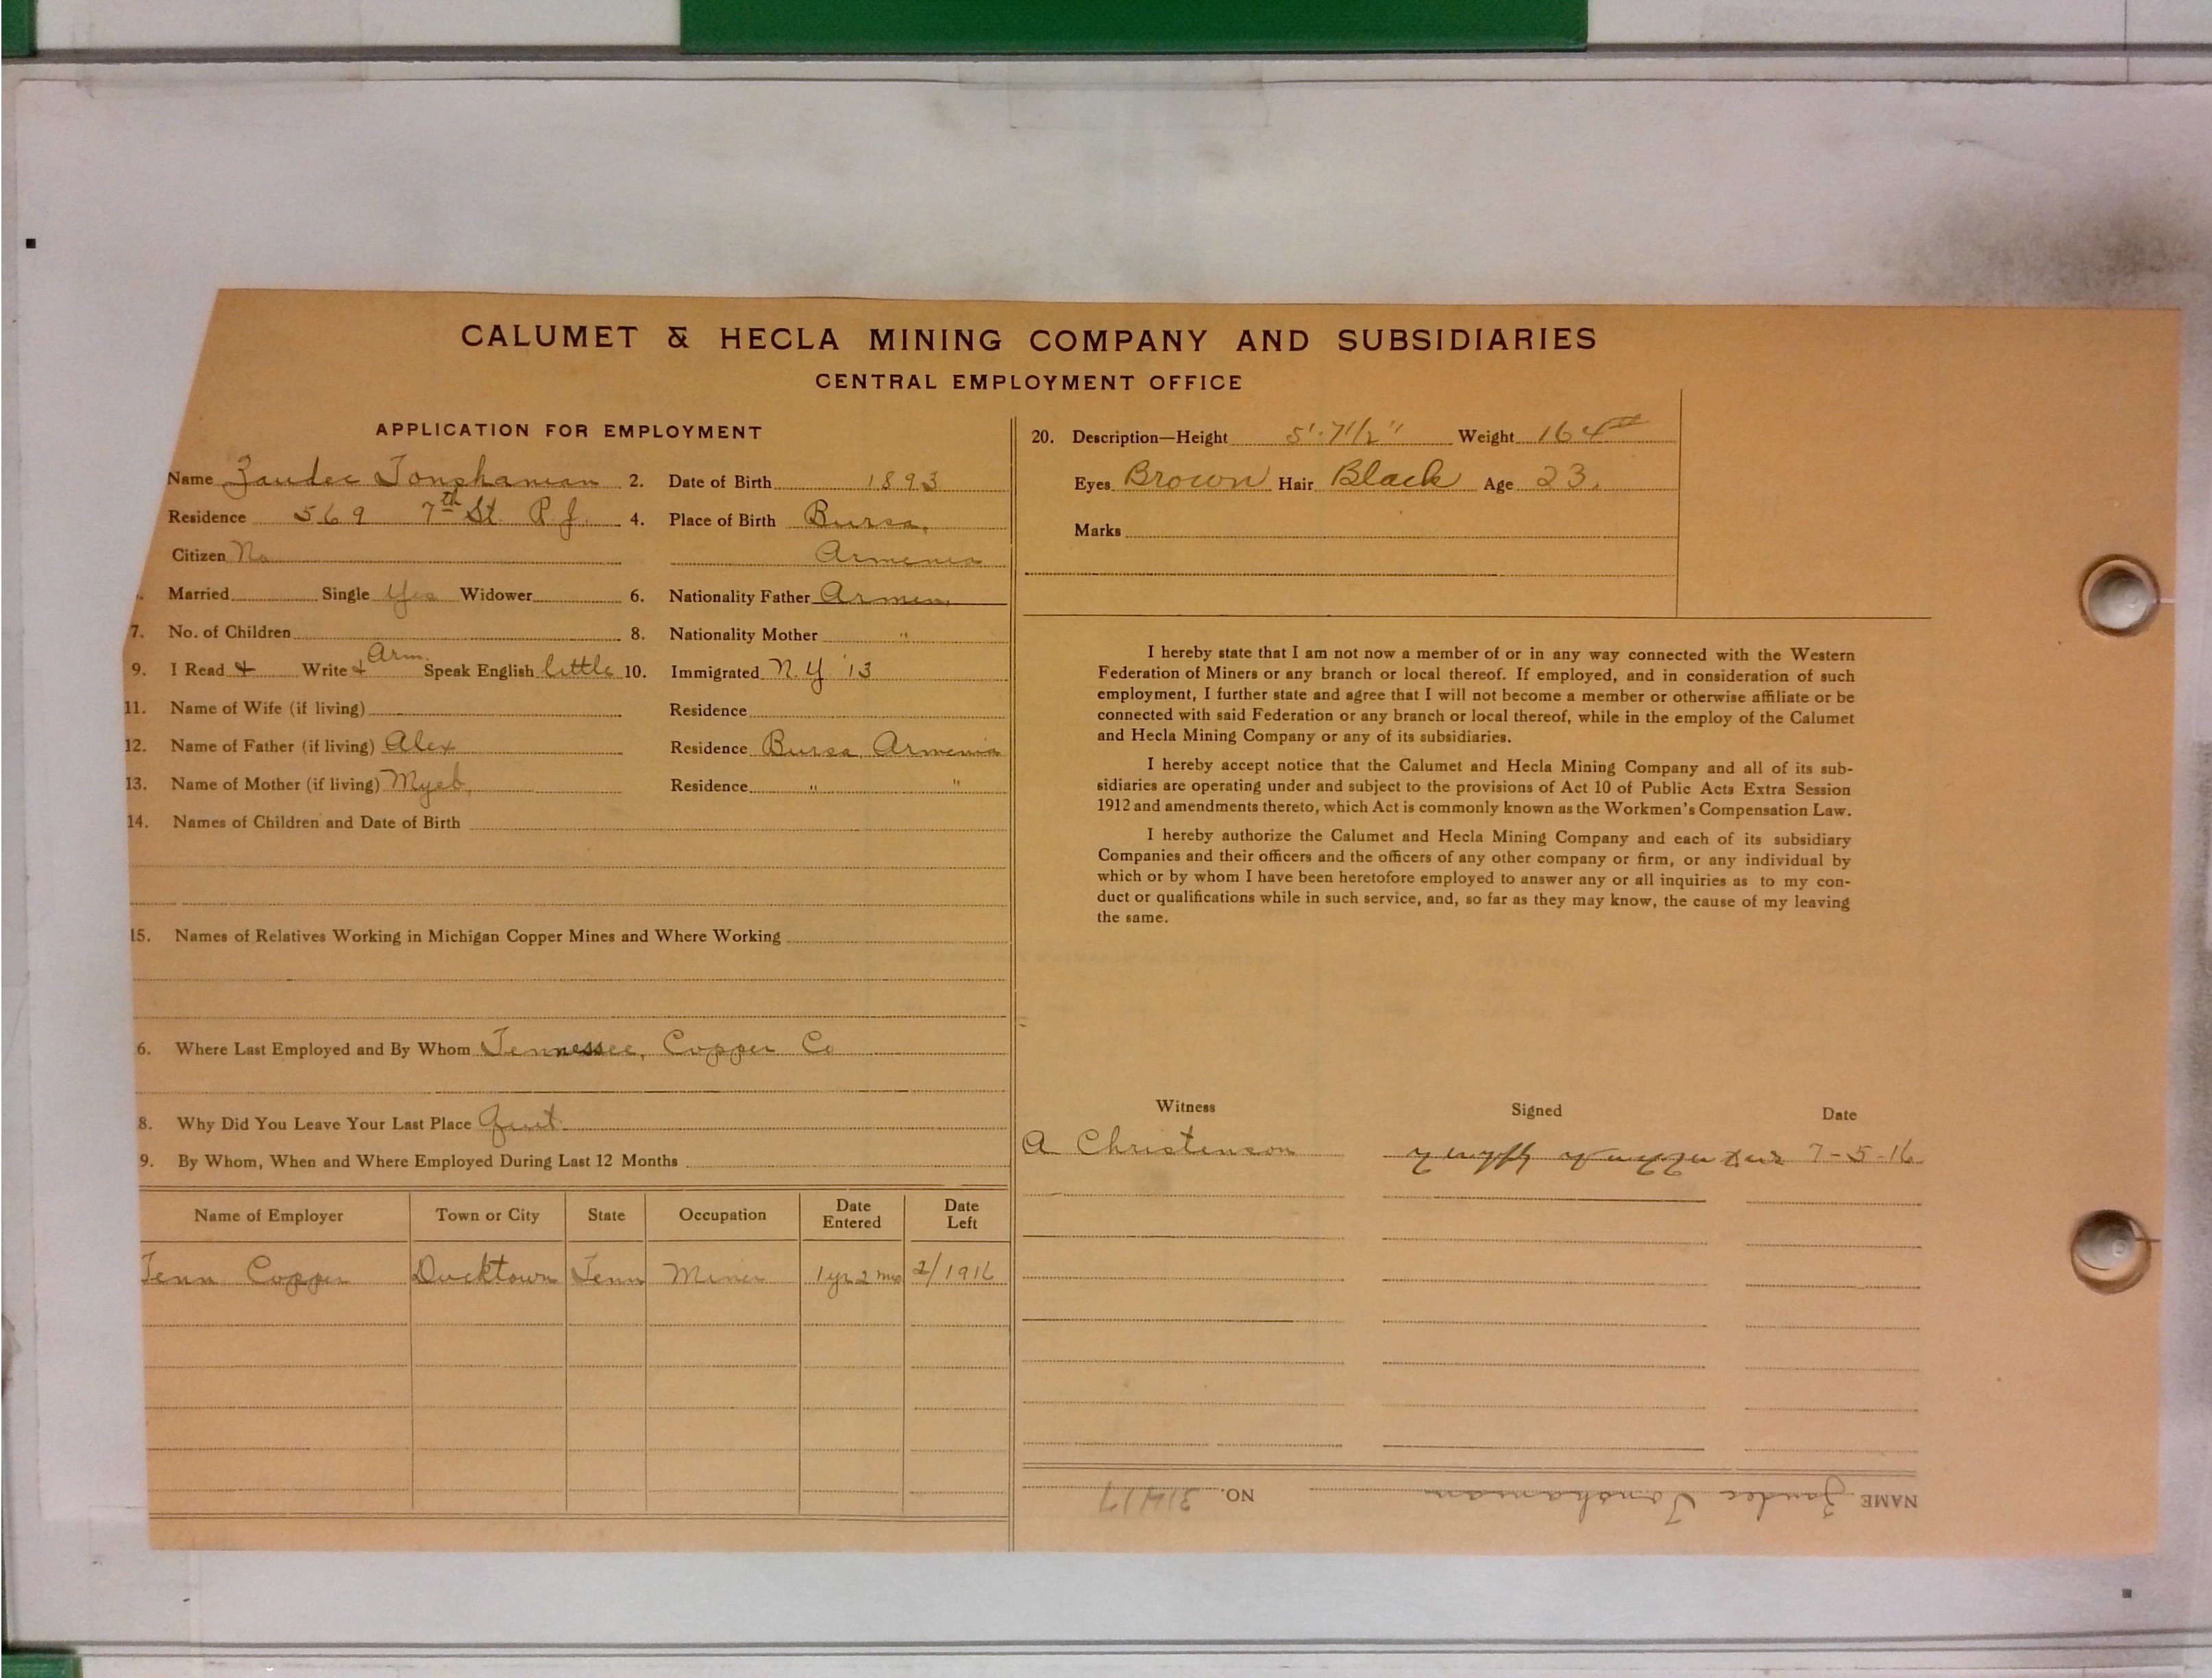 CALUMET & HECLA MINING COMPANY AND SUBSIDIARIES
CENTRAL EMPLOYMENT OFFICE
APPLICATION FOR EMPLOYMENT
Name Zandec Tonghanian 2. Date of Birth 1893
Residence 569 7th St. P.J. 4. Place of Birth Bursa,
Citizen No Armenia
Married Single Yes Widower 6. Nationality Father Armen.
7. No. of Children 8. Nationality Mother "
9. I Read + Write + Arm. Speak English little 10. Immigrated N.Y '13
11. Name of Wife (if living) Residence
12. Name of Father (if living) Alex Residence Bursa, Armenia
13. Name of Mother (if living) Myeb, Residence " "
14. Names of Children and Date of Birth
15. Names of Relatives Working in Michigan Copper Mines and Where Working
6. Where Last Employed and By Whom Tennessee, Copper Co
8. Why Did You Leave Your Last Place Quit
9. By Whom, When and Where Employed During Last 12 Months
Name of Employer Town or City State Occupation Date Entered Date Left
Tenn Copper Ducktown Tenn Miner 1 yr 2 mos 2/1916
20. Description—Height 5'-7 1/2" Weight 164#
Eyes Brown Hair Black Age 23.
Marks
I hereby state that I am not now a member of or in any way connected with the Western
Federation of Miners or any branch or local thereof. If employed, and in consideration of such
employment, I further state and agree that I will not become a member or otherwise affiliate or be
connected with said Federation or any branch or local thereof, while in the employ of the Calumet
and Hecla Mining Company or any of its subsidiaries.
I hereby accept notice that the Calumet and Hecla Mining Company and all of its sub-
sidiaries are operating under and subject to the provisions of Act 10 of Public Acts Extra Session
1912 and amendments thereto, which Act is commonly known as the Workmen's Compensation Law.
I hereby authorize the Calumet and Hecla Mining Company and each of its subsidiary
Companies and their officers and the officers of any other company or firm, or any individual by
which or by whom I have been heretofore employed to answer any or all inquiries as to my con-
duct or qualifications while in such service, and, so far as they may know, the cause of my leaving
the same.
Witness Signed Date
A Christenson 7-5-16
NAME Zandec NO. 31417